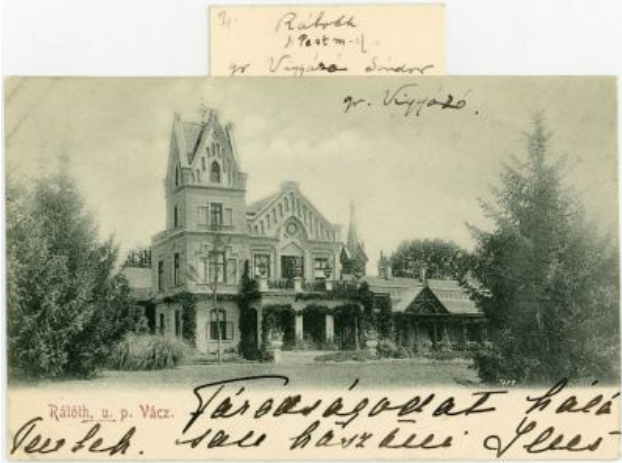 Rátóth
/: Pest m :/
gr Vigyázó Sándor
gr. Vigyázó.
Rátóth, u. p. Vácz.
Fáradságodat hálá
san köszöni